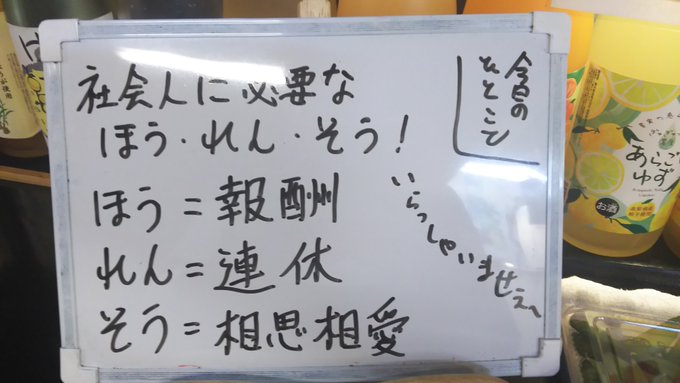 今日の
ひとこと
社会人に必要な
ほう・れん・そう!
ほう=報酬
れん=連休
そう=相思相愛
いらっしゃいませぇ〜
あらごし
ゆず
お酒